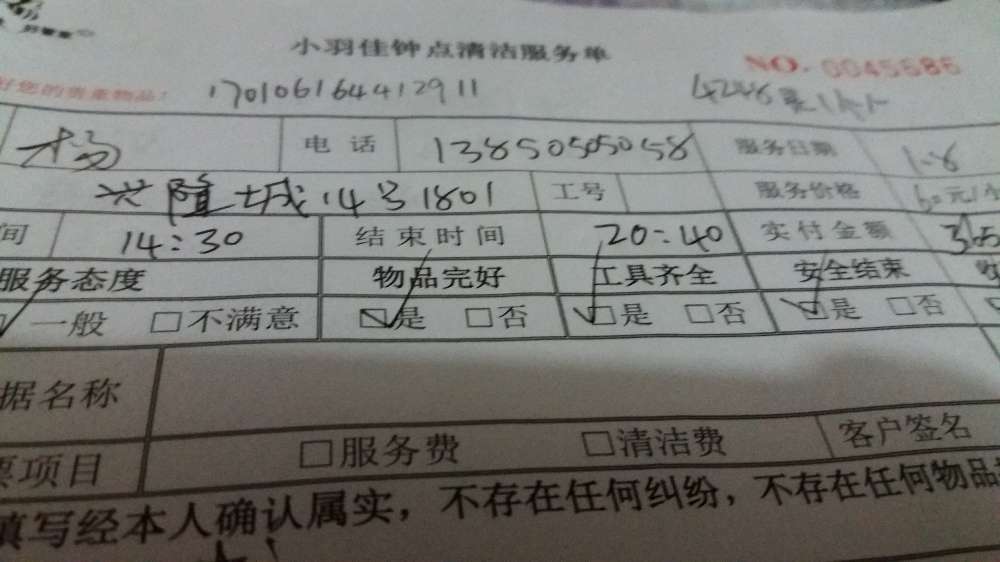 小羽佳钟点清洁服务单
NO. 0045686
好您的贵重物品!
170106164412911
杨 电话 13850505058 服务日期 1.8
兴隆城14号1801 工号 服务价格 60元/
间 14:30 结束时间 20:40 实付金额 365
服务态度 物品完好 工具齐全 安全结束
一般 □不满意 ☑是 □否 ☑是 □否 ☑是 □否
据名称
票项目 □服务费 □清洁费 客户签名
填写经本人确认属实，不存在任何纠纷，不存在任何物品